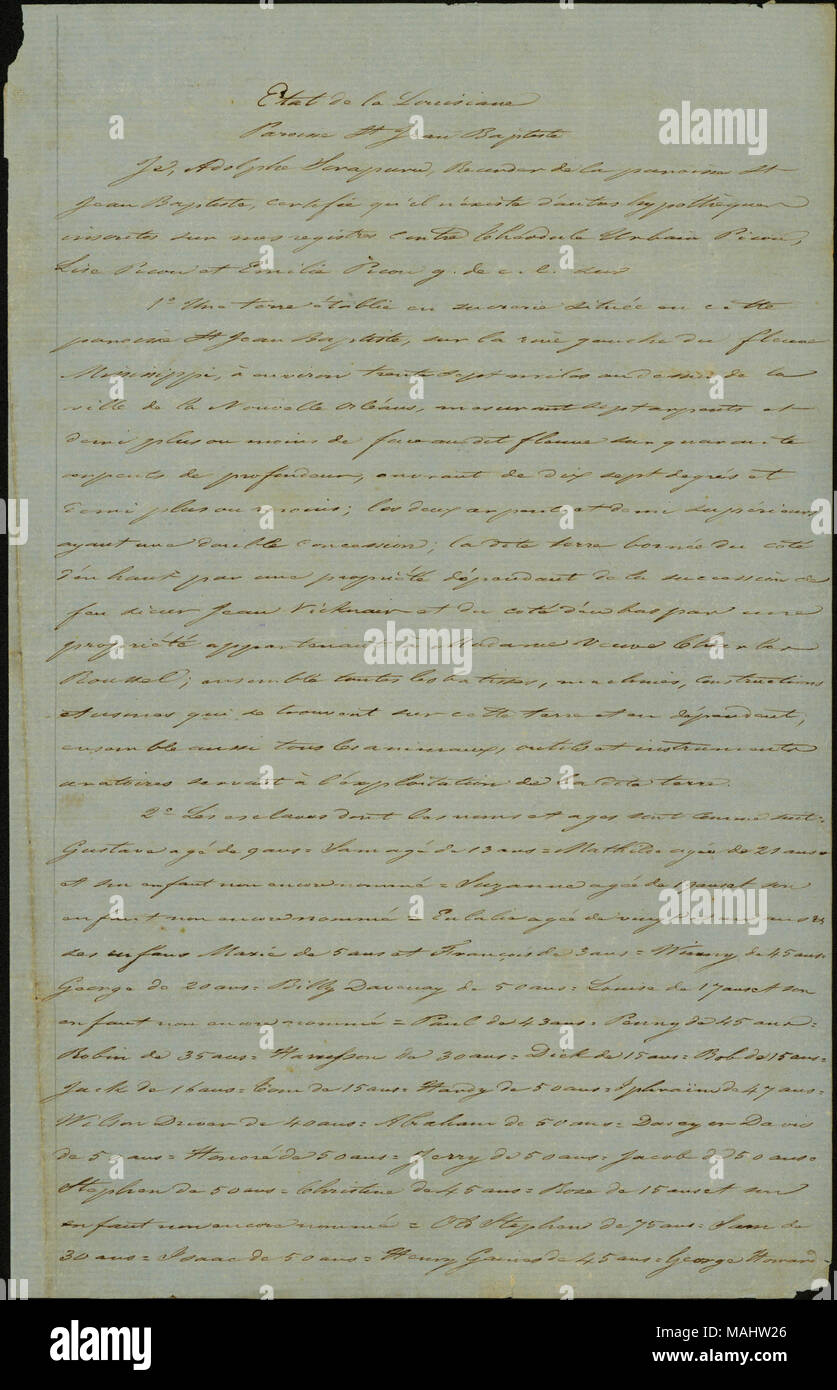 Etat de la Louisiane
Paroisse St Jean Baptiste
Je, Adolphe Sorapuru, Recorder de la paroisse St
Jean Baptiste, certifie qu'il n'existe d'autres hypothèques
inscrites sur mes registres contre Théodule Urbain Picou,
Lise Picou et Emilie Picou g. de c. l. sur
1º Une terre établie en sucrerie située en cette
paroisse St Jean Baptiste, sur la rive gauche du fleuve
Mississippi, à environ trente sept milles au dessus de la
ville de la Nouvelle Orléans, mesurant sept arpents et
demi plus ou moins de face au dit fleuve sur quarante
arpents de profondeur, ouvrant de dix sept degrés et
demi plus ou moins; les deux arpents et demi supérieurs
ayant une double concession; la dite terre bornée du côté
d'en haut par une propriété dépendant de la succession de
feu sieur Jean Vicknair et du coté d'en bas par une
propriété appartenant à Madame Veuve
Roussel; ensemble toutes les batisses, machines, constructions
et usines qui se trouvent sur cette terre et en dépendent,
ensemble aussi tous les animaux, outils et instruments
aratoires servant à l'exploitation de la dite terre.
2º Les esclaves dont les noms et ages sont comme suit:
Gustave agé de 9 ans = Sam agé de 13 ans = Mathilde agée de 21 ans
et son enfant non encore nommé = Suzanne agée de et son
enfant non encore nommé = Eulalie agée de ans et
ses enfans Marie de 5 ans et François de 3 ans = Winny de 45 ans=
George de 20 ans = Billy Davenay de 50 ans = Louise de 17 ans et son
enfant non encore nommé = Paul de 43 ans = Penny de 45 ans =
Robin de 35 ans = Hampson de 30 ans = Dick de 15 ans = Bob de 15 ans=
Jack de 16 ans = Tom de 15 ans = Hardy de 50 ans = Iphraïm de 47 ans=
Wilson Driver de 40 ans = Abraham de 50 ans = Dasey ou Davis
de 5 ans = Honoré de 50 ans = Jerry de 50 ans = Jacob de 50 ans=
Stephen de 50 ans = Christine de 45 ans = Rose de 15 ans et son
enfant non encore nommé = Old Stephens de 75 ans = Sam de
30 ans = Isaac de 50 ans = Henry Gaines de 45 ans = George Howard=
alamy
a
alamy stock photo
MAHW26
www.alamy.com